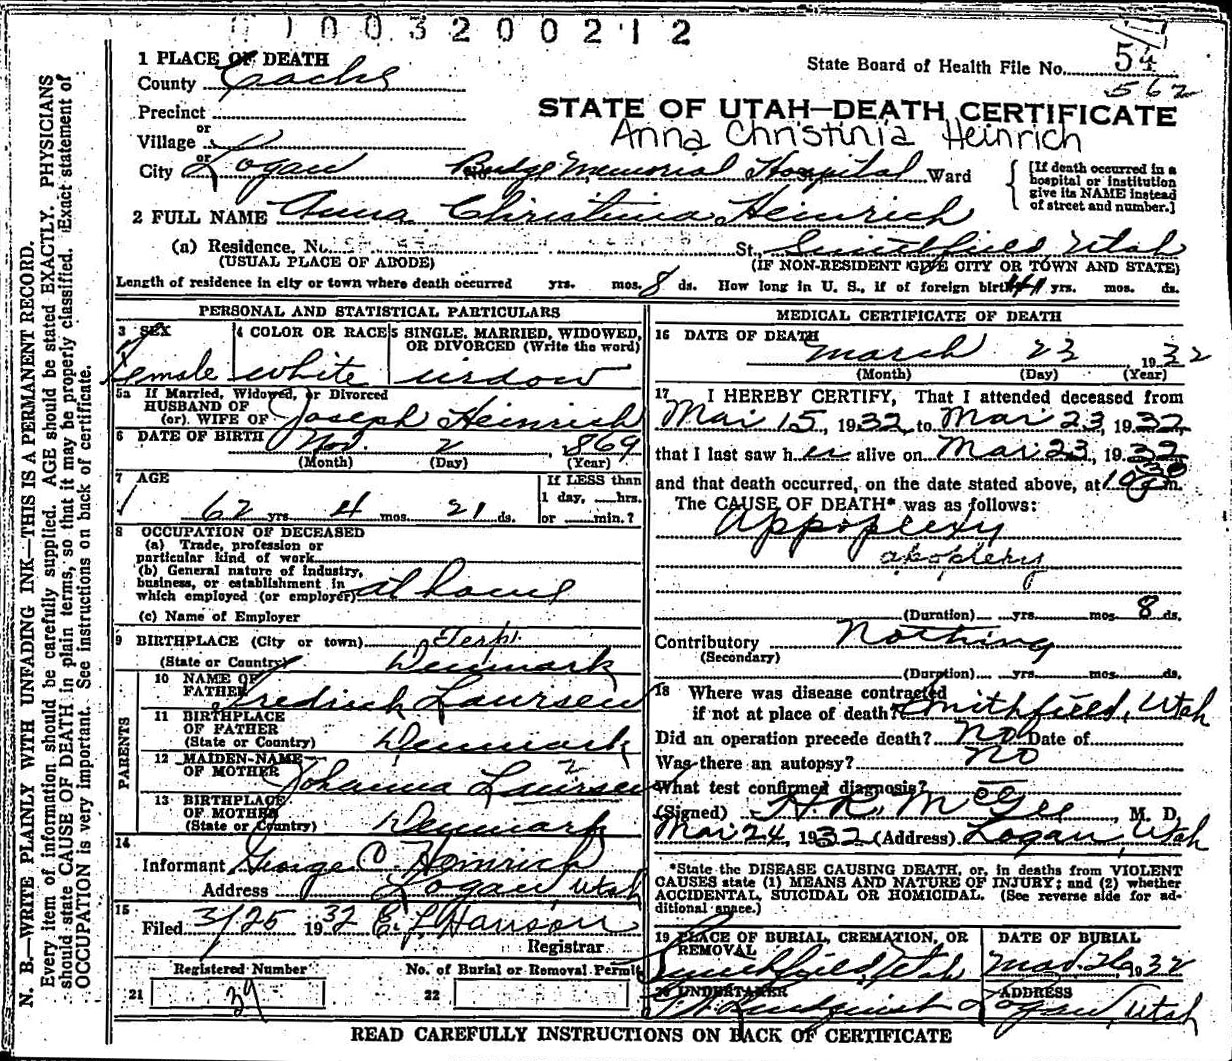 1003200212
1 PLACE OF DEATH
County Cache
State Board of Health File No. 54
562
Precinct
or
Village
or
City Logan Budge Memorial Hospital St. Ward
STATE OF UTAH—DEATH CERTIFICATE
Anna Christinia Heinrich
[If death occurred in a hospital or institution give its NAME instead of street and number.]
2 FULL NAME Anna Christina Heinrich
(a) Residence. No. St., Smithfield, Utah
(USUAL PLACE OF ABODE) (IF NON-RESIDENT GIVE CITY OR TOWN AND STATE)
Length of residence in city or town where death occurred yrs. mos. 8 ds. How long in U. S., if of foreign birth 41 yrs. mos. ds.
PERSONAL AND STATISTICAL PARTICULARS
3 SEX
Female
4 COLOR OR RACE
white
5 SINGLE, MARRIED, WIDOWED, OR DIVORCED (Write the word)
widow
5a If Married, Widowed, or Divorced
HUSBAND OF
(or) WIFE OF Joseph Heinrich
6 DATE OF BIRTH Nov. 2 1869
(Month) (Day) (Year)
7 AGE
62 yrs 4 mos. 21 ds.
If LESS than
1 day, hrs.
or min.?
8 OCCUPATION OF DECEASED
(a) Trade, profession or
particular kind of work
(b) General nature of industry,
business, or establishment in
which employed (or employer) at home
(c) Name of Employer
9 BIRTHPLACE (City or town) Terp.
(State or Country) Denmark
PARENTS
10 NAME OF FATHER Fredisck Laursen
11 BIRTHPLACE OF FATHER
(State or Country) Denmark
12 MAIDEN NAME OF MOTHER Johanna Laursen
13 BIRTHPLACE OF MOTHER
(State or Country) Denmark
14
Informant George C. Heinrich
Address Logan, Utah
15
Filed 3/25 1932 E. L. Hanson
Registrar
Registered Number
21 39
No. of Burial or Removal Permit
22
MEDICAL CERTIFICATE OF DEATH
16 DATE OF DEATH
March 23 1932
(Month) (Day) (Year)
17 I HEREBY CERTIFY, That I attended deceased from
Mar 15, 1932, to Mar 23, 1932
that I last saw her alive on Mar 23, 1932
and that death occurred, on the date stated above, at 10 30 m.
The CAUSE OF DEATH* was as follows:
Appoplexy
apoplexy
(Duration) yrs. mos. 8 ds.
Contributory Nothing
(Secondary)
(Duration) yrs. mos. ds.
18 Where was disease contracted
if not at place of death? Smithfield, Utah
Did an operation precede death? No Date of
Was there an autopsy? No
What test confirmed diagnosis?
(Signed) H. R. McGee, M. D.
Mar 24, 1932 (Address) Logan, Utah
*State the DISEASE CAUSING DEATH, or, in deaths from VIOLENT
CAUSES state (1) MEANS AND NATURE OF INJURY; and (2) whether
ACCIDENTAL, SUICIDAL OR HOMICIDAL. (See reverse side for additional space.)
19 PLACE OF BURIAL, CREMATION, OR REMOVAL
Smithfield, Utah
DATE OF BURIAL
Mar. 26, 1932
20 UNDERTAKER
Lindquist
ADDRESS
Logan, Utah
READ CAREFULLY INSTRUCTIONS ON BACK OF CERTIFICATE
N. B.—WRITE PLAINLY WITH UNFADING INK—THIS IS A PERMANENT RECORD.
Every item of information should be carefully supplied. AGE should be stated EXACTLY. PHYSICIANS
should state CAUSE OF DEATH in plain terms, so that it may be properly classified. Exact statement of
OCCUPATION is very important. See instructions on back of certificate.